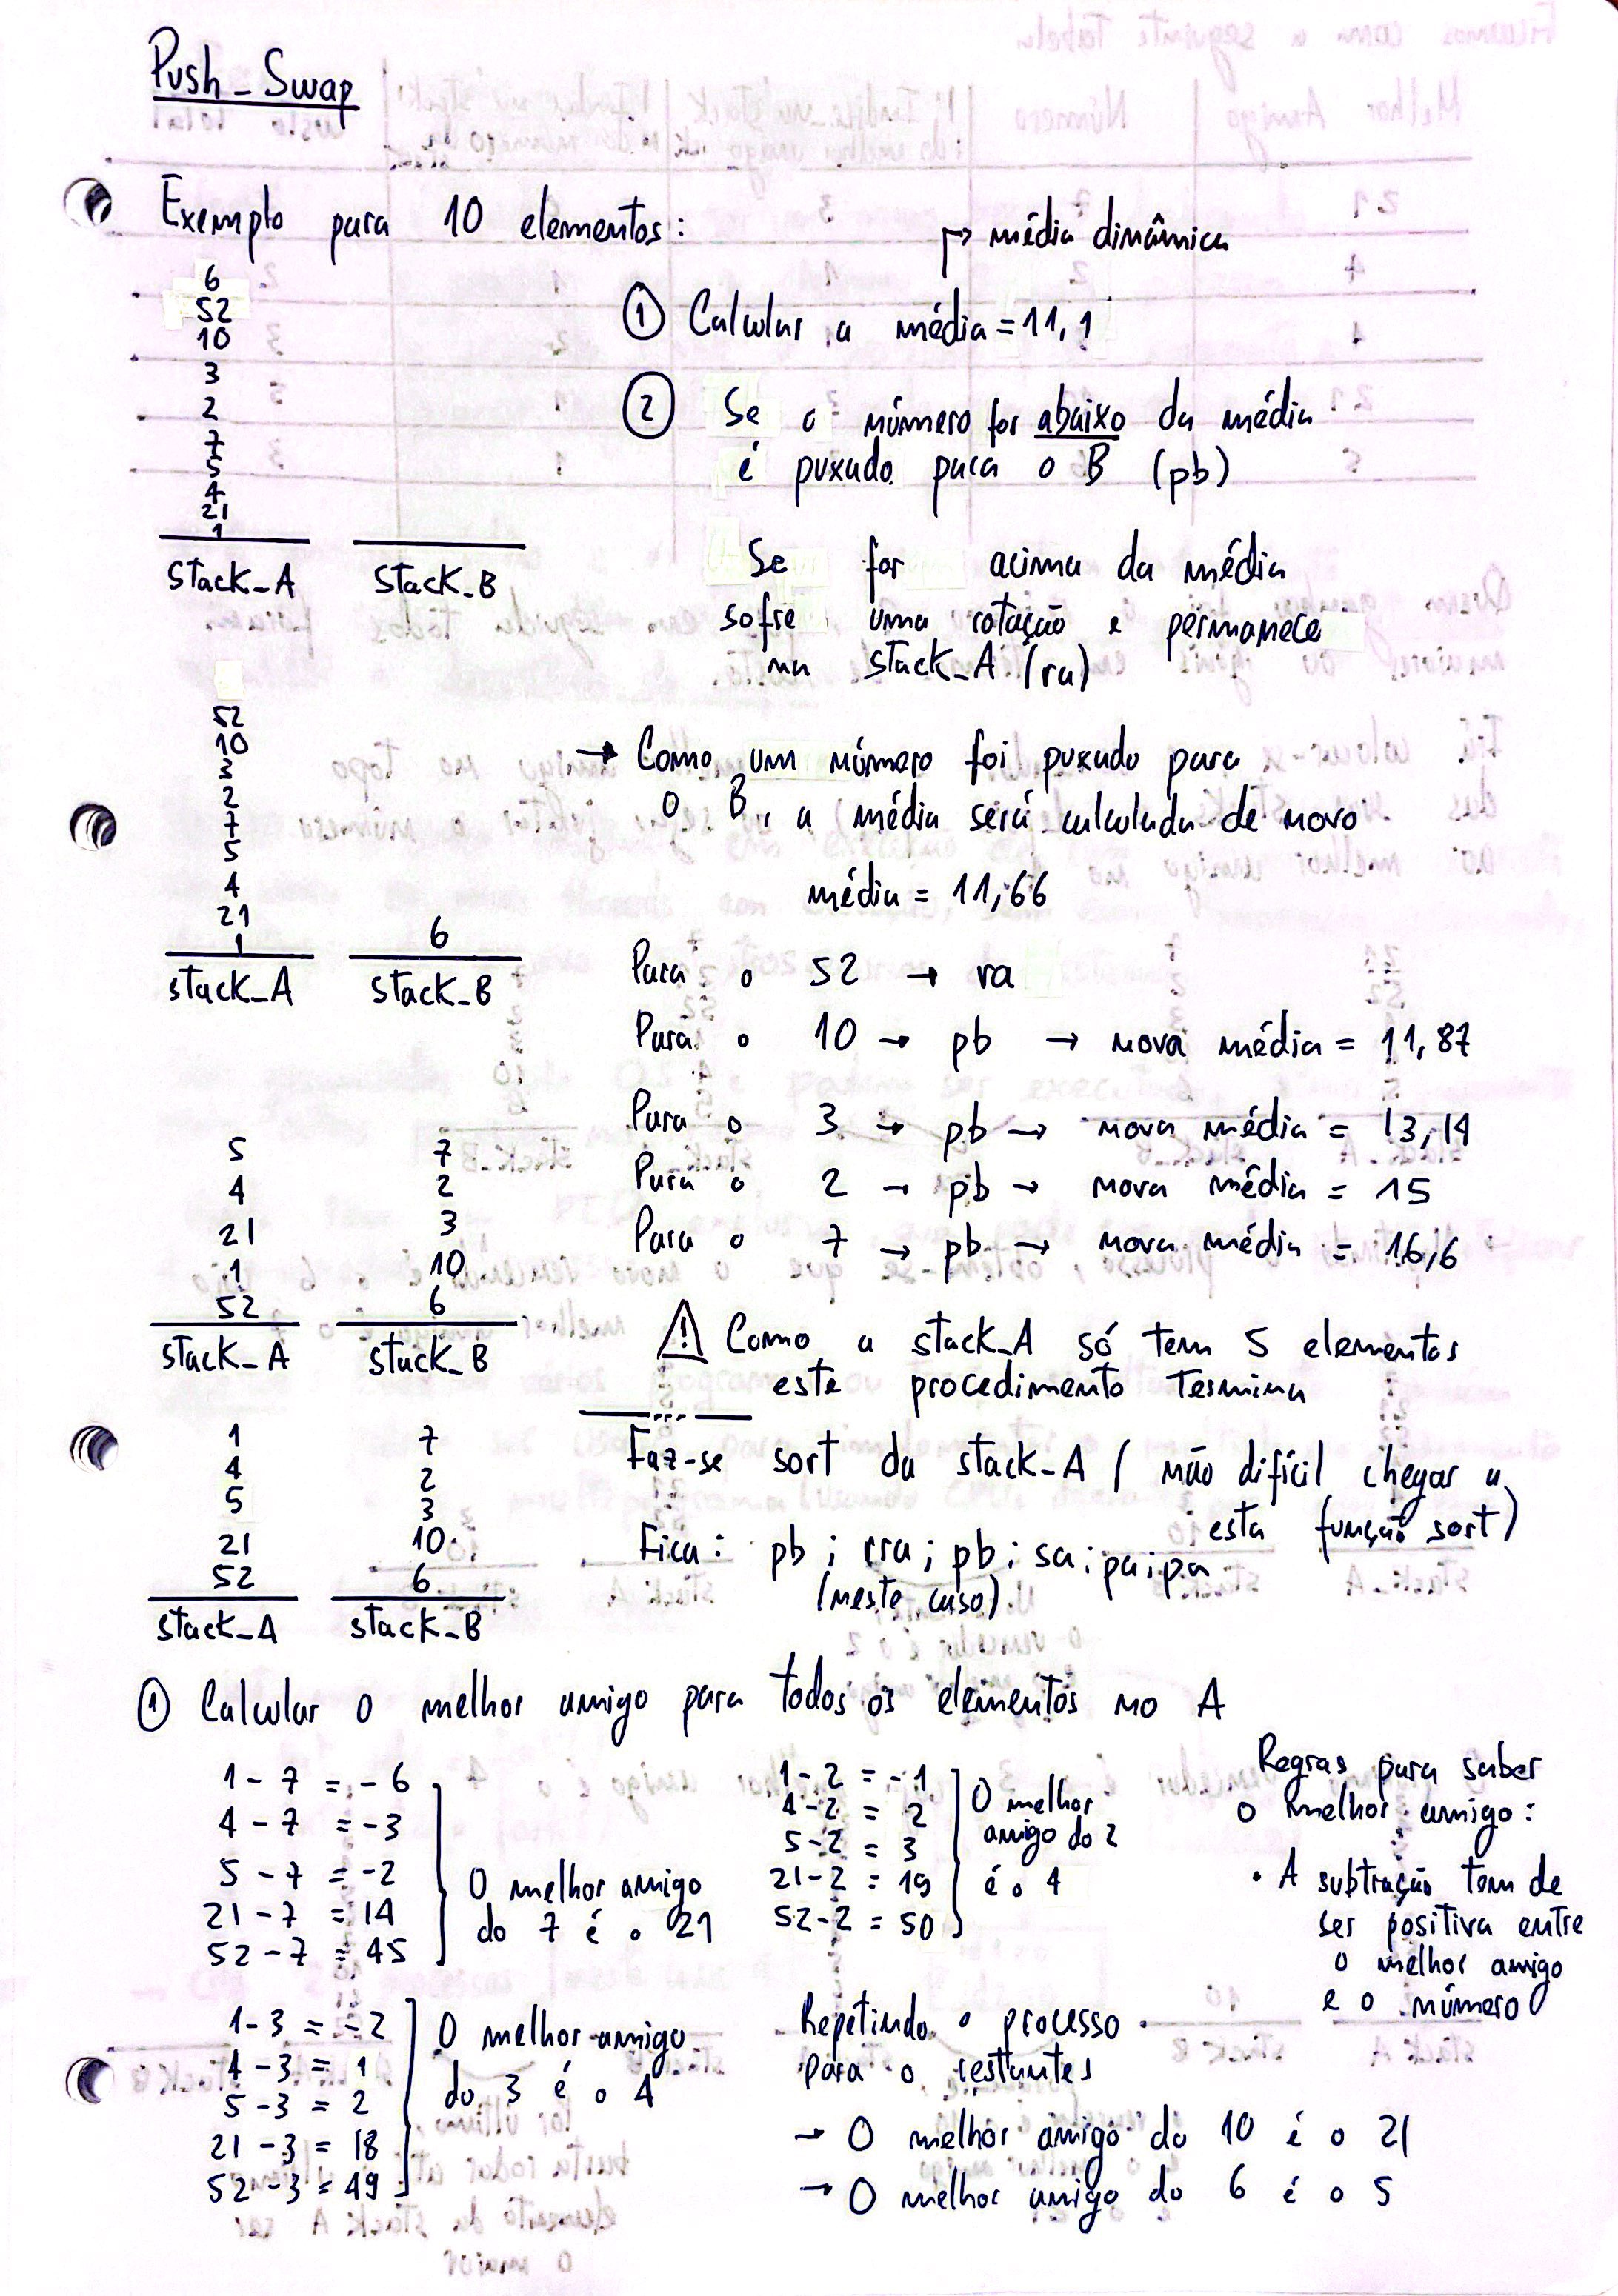 Push_Swap
Exemplo para 10 elementos:
6
52
10
3
2
7
5
4
21
1
stack_A stack_B
→ média dinâmica
① Calcular a média = 11,1
② Se o número for abaixo da média
é puxado para o B (pb)
Se for acima da média
sofre uma rotação e permanece
na stack_A (ra)
52
10
3
2
7
5
4
21
1 6
stack_A stack_B
→ Como um número foi puxado para
o B, a média será calculada de novo
média = 11,66
Para o 52 → ra
Para o 10 → pb → nova média = 11,87
Para o 3 → pb → nova média = 13,14
Para o 2 → pb → nova média = 15
Para o 7 → pb → nova média = 16,6
5 7
4 2
21 3
1 10
52 6
stack_A stack_B
⚠ Como a stack_A só tem 5 elementos
este procedimento termina
1 7
4 2
5 3
21 10
52 6
stack_A stack_B
Faz-se sort da stack_A (não difícil chegar a
esta função sort)
Fica: pb; rra; pb; sa; pa; pa
(neste caso)
① Calcular o melhor amigo para todos os elementos no A
1 - 7 = - 6
4 - 7 = -3
5 - 7 = -2
21 - 7 = 14
52 - 7 = 45
O melhor amigo
do 7 é o 21
1 - 2 = -1
4 - 2 = 2
5 - 2 = 3
21 - 2 = 19
52 - 2 = 50
O melhor
amigo do 2
é o 4
Regras para saber
o melhor amigo:
• A subtração tem de
ser positiva entre
o melhor amigo
e o número
1 - 3 = -2
4 - 3 = 1
5 - 3 = 2
21 - 3 = 18
52 - 3 = 49
O melhor amigo
do 3 é o 4
Repetindo o processo
para o restantes
→ O melhor amigo do 10 é o 21
→ O melhor amigo do 6 é o 5